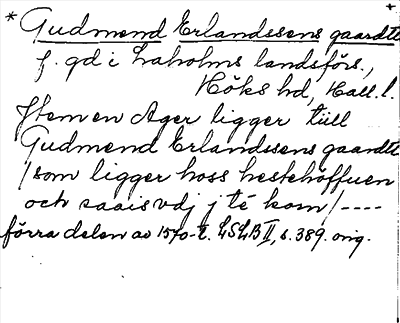 * Gudmend Erlandssens gaardtt
f. gd i Laholms landsförs.,
Höks hd, Hall. l.
Item en Ager ligger tüll
Gudmend Erlandssens gaardtt
/som ligger hoss hestehöffuen
och saais vdj j té korn/----
förra delen av 1570-t. LSLB II, s. 389. orig.